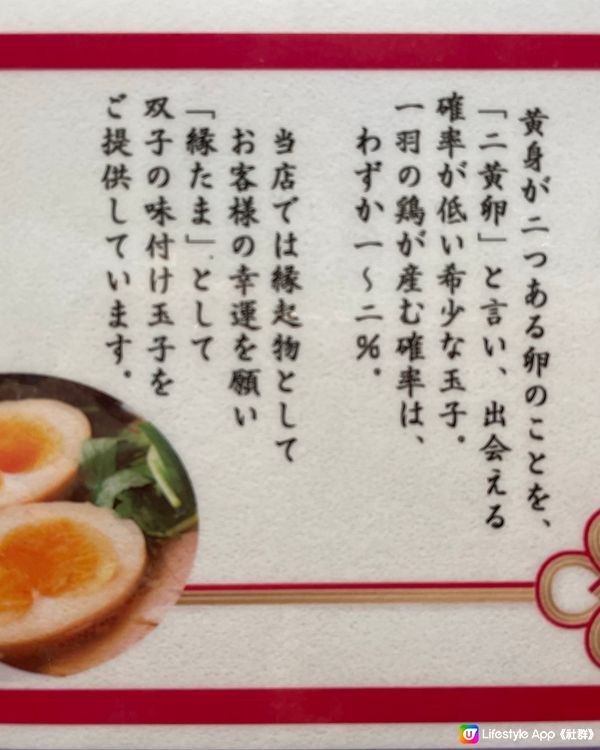 黄身が二つある卵のことを、
「二黄卵」と言い、出会える
確率が低い希少な玉子。
一羽の鶏が産む確率は、
わずか一〜二%。
当店では縁起物として
お客様の幸運を願い
「縁たま」として
双子の味付け玉子を
ご提供しています。
U Lifestyle App《社群》